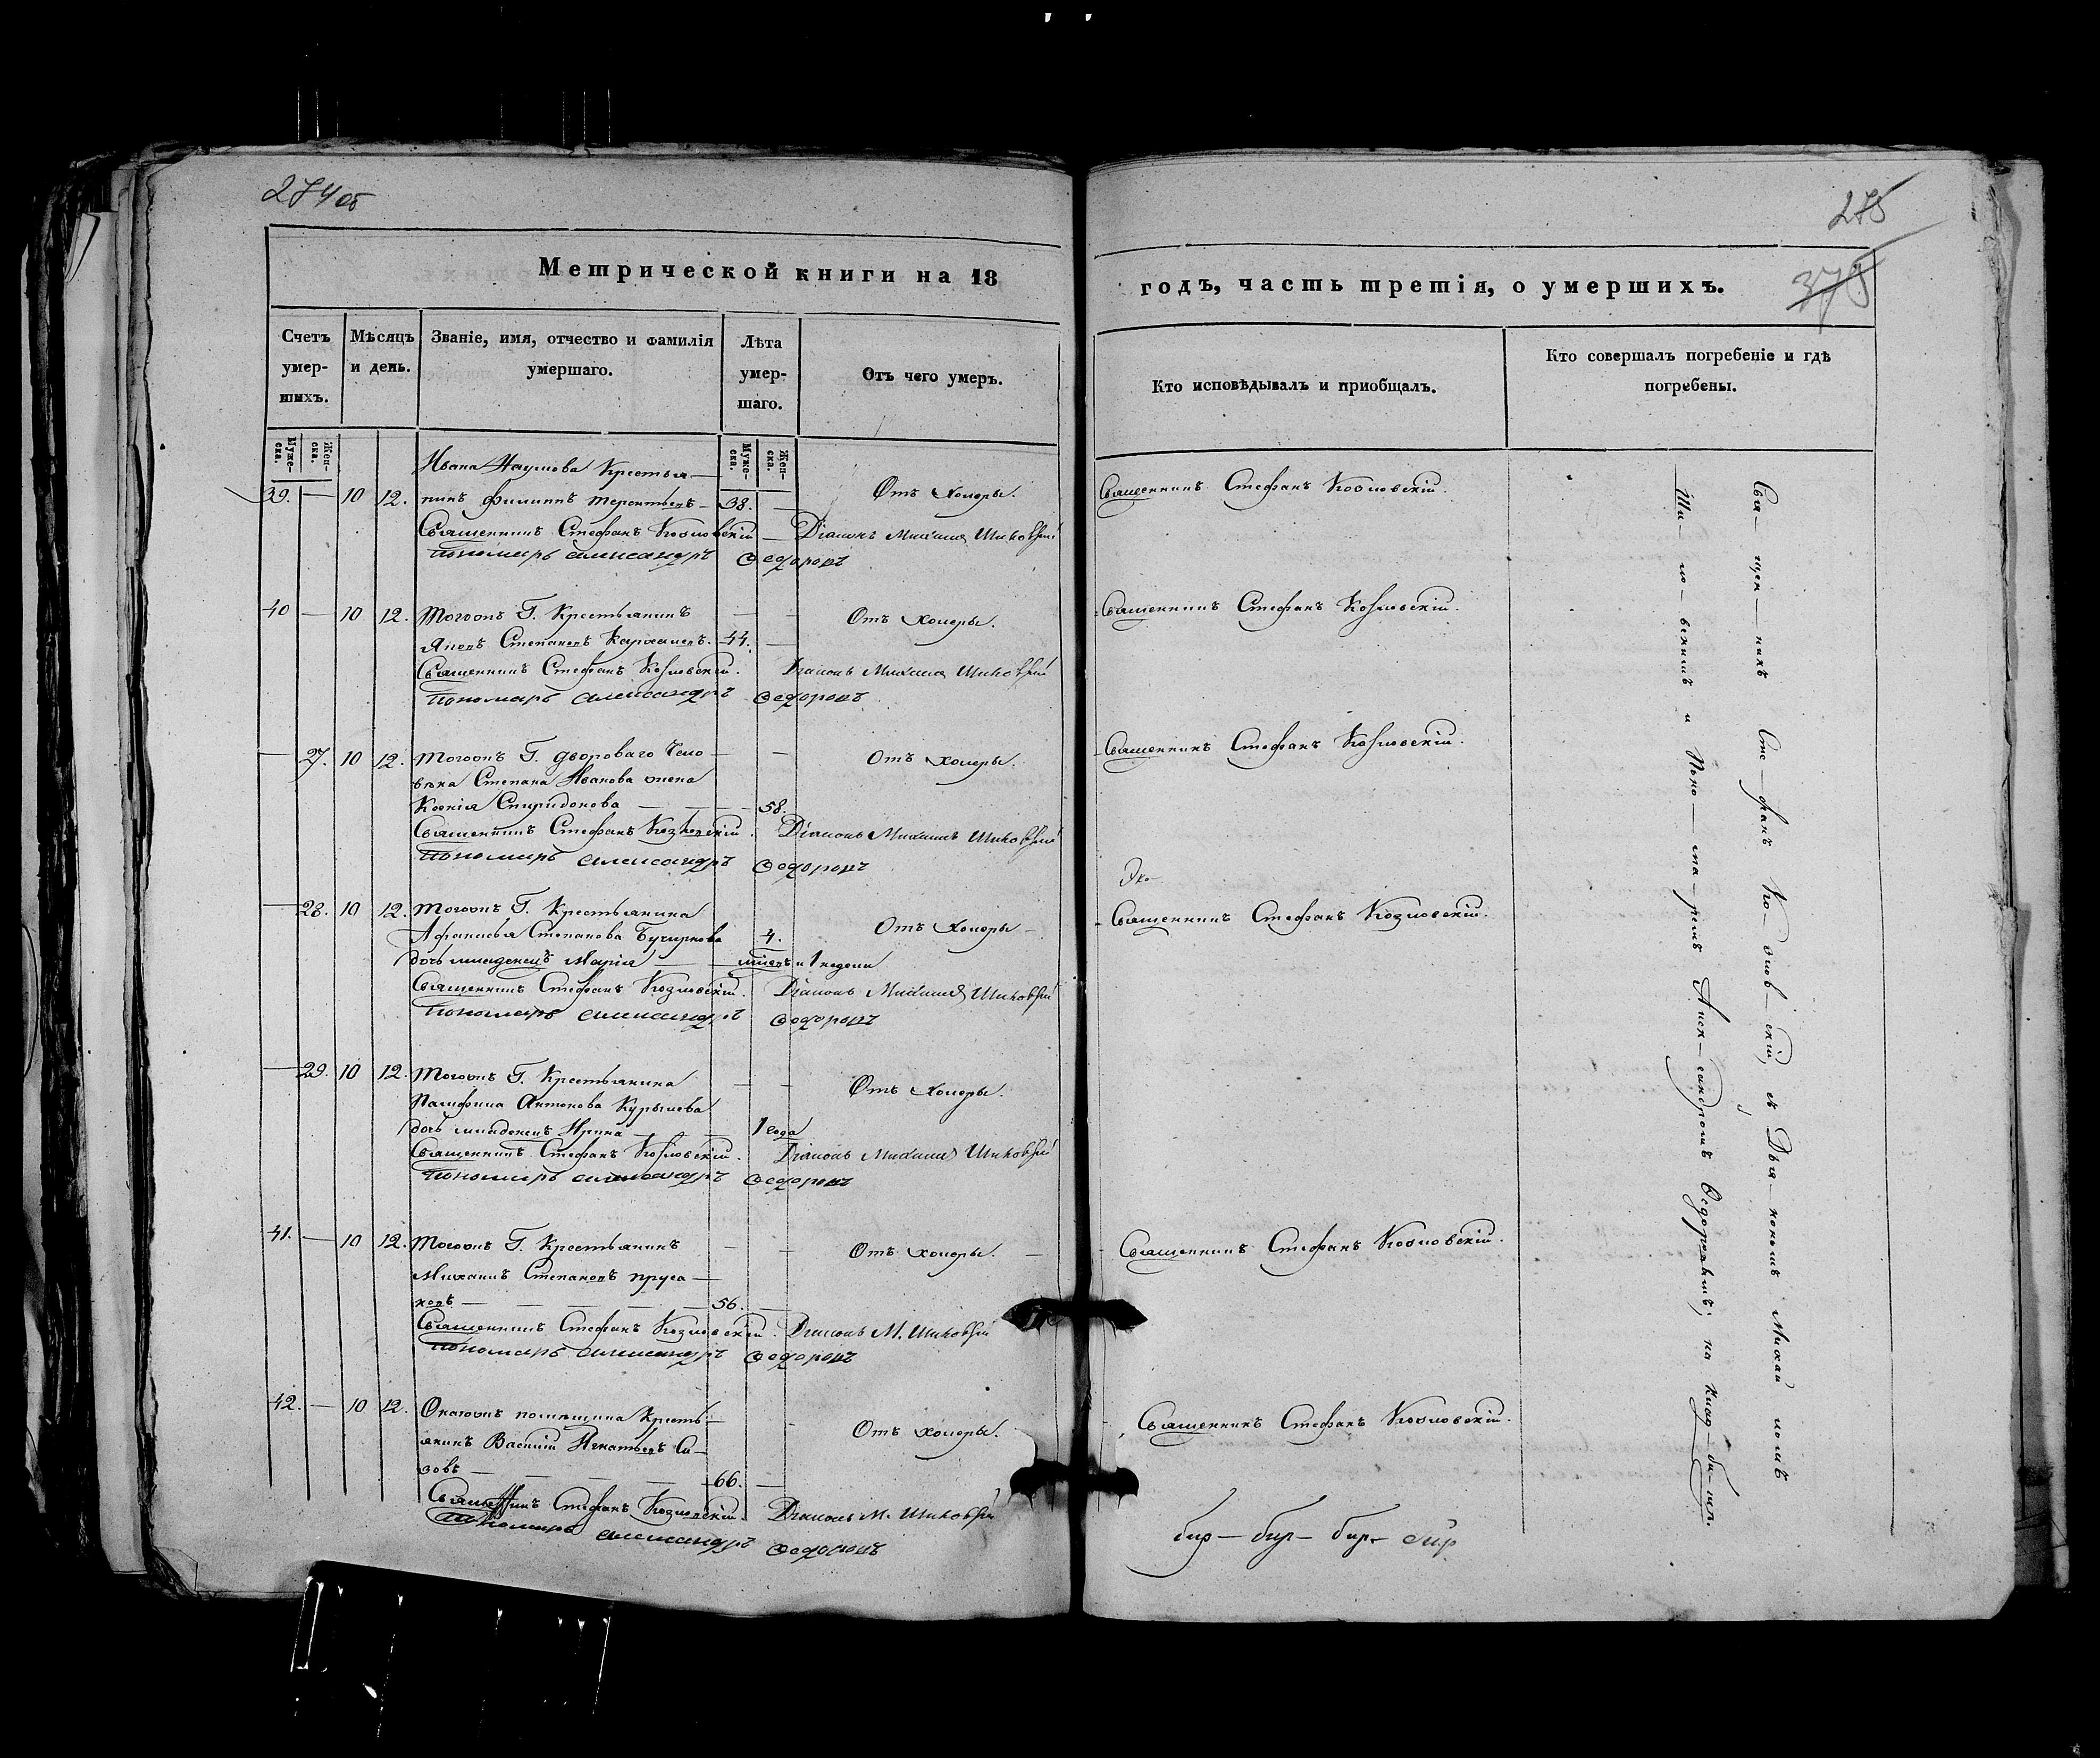 274 об
Метрической книги на 18
Счетъ умер-шихъ.
Мѣсяцъ и день.
Званіе, имя, отчество и фамилія умершаго.
Лѣта умер-шаго.
Отъ чего умеръ.
Муже-ска.
Жен-ска.
Муже-ска.
Жен-ска.
Ивана Наумова Крестья-
39. — 10 12. нинъ Филиппъ Терентьевъ — 38. — Отъ Холеры.
Священникъ Стефанъ Козловскій Діаконъ Михаилъ
Пономарь Александръ Федоровъ
40 — 10 12. Тогожъ Г. Крестьянинъ — — Отъ Холеры.
Степановъ 44. —
Священникъ Стефанъ Козловскій. Діаконъ Михаилъ
Пономарь Александръ Федоровъ
— 27. 10 12. Тогожъ Г. дворового Чело — — Отъ Холеры.
вѣка Степана Иванова жена
Ксенія Спиридонова — — — 58.
Священникъ Стефанъ Козловскій. Діаконъ Михаилъ
Пономарь Александръ Федоровъ
— 28. 10 12. Тогожъ Г. Крестьянина Отъ Холеры —
Афанасья Степанова 4.
дочь младенецъ Марія — и 1 недели
Священникъ Стефанъ Козловскій. Діаконъ Михаилъ
Пономарь Александръ Федоровъ
— 29. 10 12. Тогожъ Г. Крестьянина — — Отъ Холеры.
Антонова
дочь младенецъ Ирина — — 1 года
Священникъ Стефанъ Козловскій. Діаконъ Михаилъ
Пономарь Александръ Федоровъ
41. — 10 12. Тогожъ Г. Крестьянинъ — — Отъ Холеры. —
Михаилъ Степановъ Пруса —
ковъ — — — — — 56. —
Священникъ Стефанъ Козловскій. Діаконъ М.
Пономарь Александръ Федоровъ
42. — 10 12. помѣщика Кресть- — Отъ Холеры.
янинъ Василій Игнатьевъ Си-
зовъ — — — — 66. —
Священникъ Стефанъ Козловскій. Діаконъ М.
Пономарь Александръ Федоровъ
275
375
годъ, часть третія, о умершихъ.
Кто исповѣдывалъ и приобщалъ.
Кто совершалъ погребеніе и гдѣ погребены.
Священникъ Стефанъ Козловскій.
Священникъ Стефанъ Козловскій.
Священникъ Стефанъ Козловскій.
Священникъ Стефанъ Козловскій.
Священникъ Стефанъ Козловскій.
Священникъ Стефанъ Козловскій.
Свя — щен — никъ Сте — фанъ Ко — злов — скій, съ Дья — кономъ Михаи ломъ
и Поно — ма — ремъ Алек — сандромъ Федоровымъ, на Клад — би — щѣ.